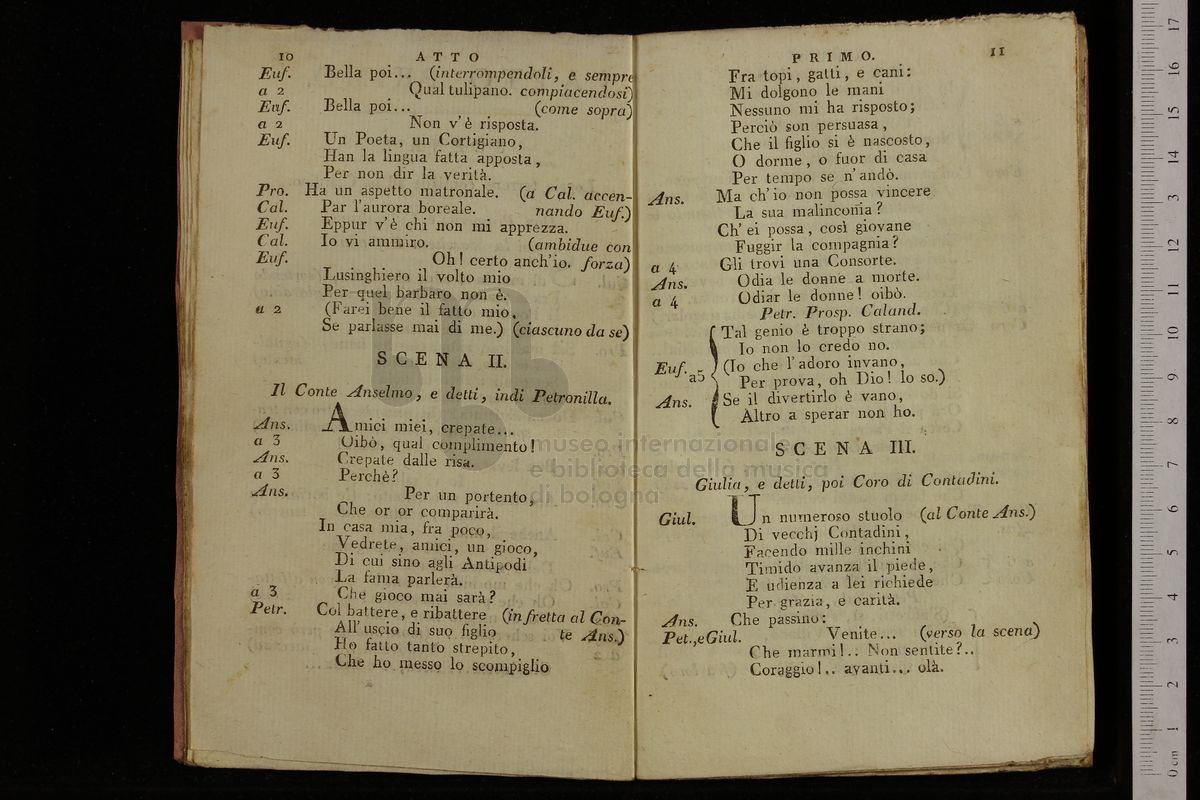 10 ATTO
Euf. Bella poi... (interrompendoli, e sempre
a 2 Qual tulipano. compiacendosi)
Euf. Bella poi... (come sopra)
a 2 Non v'è risposta.
Euf. Un Poeta, un Cortigiano,
Han la lingua fatta apposta,
Per non dir la verità.
Pro. Ha un aspetto matronale. (a Cal. accen-
Cal. Par l'aurora boreale. nando Euf.)
Euf. Eppur v'è chi non mi apprezza.
Cal. Io vi ammiro. (ambidue con
Euf. Oh! certo anch'io. forza)
Lusinghiero il volto mio
Per quel barbaro non è.
a 2 (Farei bene il fatto mio,
Se parlasse mai di me.) (ciascuno da se)
SCENA II.
Il Conte Anselmo, e detti, indi Petronilla.
Ans. Amici miei, crepate...
a 3 Oibò, qual complimento!
Ans. Crepate dalle risa.
a 3 Perchè?
Ans. Per un portento,
Che or or comparirà.
In casa mia, fra poco,
Vedrete, amici, un gioco,
Di cui sino agli Antipodi
La fama parlerà.
a 3 Che gioco mai sarà?
Petr. Col battere, e ribattere (in fretta al Con-
All'uscio di suo figlio te Ans.)
Ho fatto tanto strepito,
Che ho messo lo scompiglio
PRIMO. 11
Fra topi, gatti, e cani:
Mi dolgono le mani
Nessuno mi ha risposto;
Perciò son persuasa,
Che il figlio si è nascosto,
O dorme, o fuor di casa
Per tempo se n'andò.
Ans. Ma ch'io non possa vincere
La sua malinconia?
Ch'ei possa, così giovane
Fuggir la compagnia?
a 4 Gli trovi una Consorte.
Ans. Odia le donne a morte.
a 4 Odiar le donne! oibò.
Petr. Prosp. Caland.
Tal genio è troppo strano;
Io non lo credo no.
Euf. a5 (Io che l'adoro invano,
Per prova, oh Dio! lo so.)
Ans. Se il divertirlo è vano,
Altro a sperar non ho.
SCENA III.
Giulia, e detti, poi Coro di Contadini.
Giul. Un numeroso stuolo (al Conte Ans.)
Di vecchj Contadini,
Facendo mille inchini
Timido avanza il piede,
E udienza a lei richiede
Per grazia, e carità.
Ans. Che passino:
Pet.,e Giul. Venite... (verso la scena)
Che marmi!.. Non sentite?..
Coraggio!.. avanti... olà.
museo internazionale
e biblioteca della musica
di bologna
0 cm 1 2 3 4 5 6 7 8 9 10 11 12 3 14 15 16 17